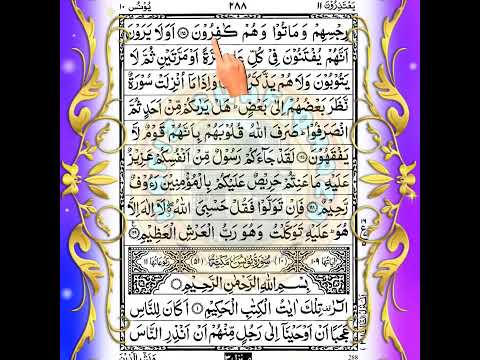 يَعْتَذِرُوْنَ ۱۱ ۲۸۸ يُوْنُس ۱۰
رِجْسِهِمْ وَمَاتُوْا وَهُمْ كٰفِرُوْنَ ﴿۱۲۵﴾ اَوَلَا يَرَوْنَ
اَنَّهُمْ يُفْتَنُوْنَ فِيْ كُلِّ عَامٍ مَّرَّةً اَوْ مَرَّتَيْنِ ثُمَّ لَا
يَتُوْبُوْنَ وَلَا هُمْ يَذَّكَّرُوْنَ ﴿۱۲۶﴾ وَاِذَا مَآ اُنْزِلَتْ سُوْرَةٌ
نَّظَرَ بَعْضُهُمْ اِلٰى بَعْضٍ هَلْ يَرٰىكُمْ مِّنْ اَحَدٍ ثُمَّ
انْصَرَفُوْا صَرَفَ اللّٰهُ قُلُوْبَهُمْ بِاَنَّهُمْ قَوْمٌ لَّا
يَفْقَهُوْنَ ﴿۱۲۷﴾ لَقَدْ جَآءَكُمْ رَسُوْلٌ مِّنْ اَنْفُسِكُمْ عَزِيْزٌ
عَلَيْهِ مَا عَنِتُّمْ حَرِيْصٌ عَلَيْكُمْ بِالْمُؤْمِنِيْنَ رَءُوْفٌ
رَّحِيْمٌ ﴿۱۲۸﴾ فَاِنْ تَوَلَّوْا فَقُلْ حَسْبِيَ اللّٰهُ لَآ اِلٰهَ اِلَّا
هُوَ عَلَيْهِ تَوَكَّلْتُ وَهُوَ رَبُّ الْعَرْشِ الْعَظِيْمِ ﴿۱۲۹﴾
اٰيَاتُهَا ۱۰۹ (۱۰) سُوْرَةُ يُوْنُسَ مَكِّيَّةٌ (۵۱) رُكُوْعَاتُهَا ۱۱
بِسْمِ اللّٰهِ الرَّحْمٰنِ الرَّحِيْمِ
الٓرٰ تِلْكَ اٰيٰتُ الْكِتٰبِ الْحَكِيْمِ ﴿۱﴾ اَكَانَ لِلنَّاسِ
عَجَبًا اَنْ اَوْحَيْنَآ اِلٰى رَجُلٍ مِّنْهُمْ اَنْ اَنْذِرِ النَّاسَ
288